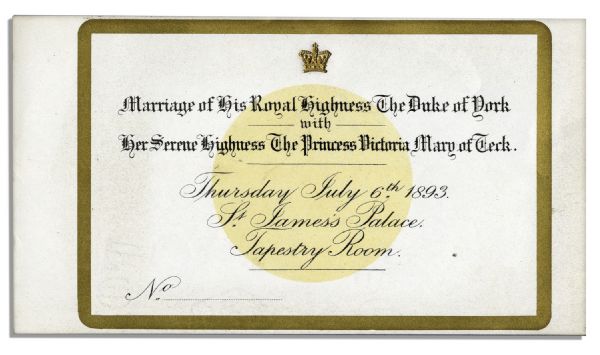 Marriage of His Royal Highness The Duke of York
with
Her Serene Highness The Princess Victoria Mary of Teck.
Thursday July 6th. 1893.
St. James's Palace.
Tapestry Room.
No.